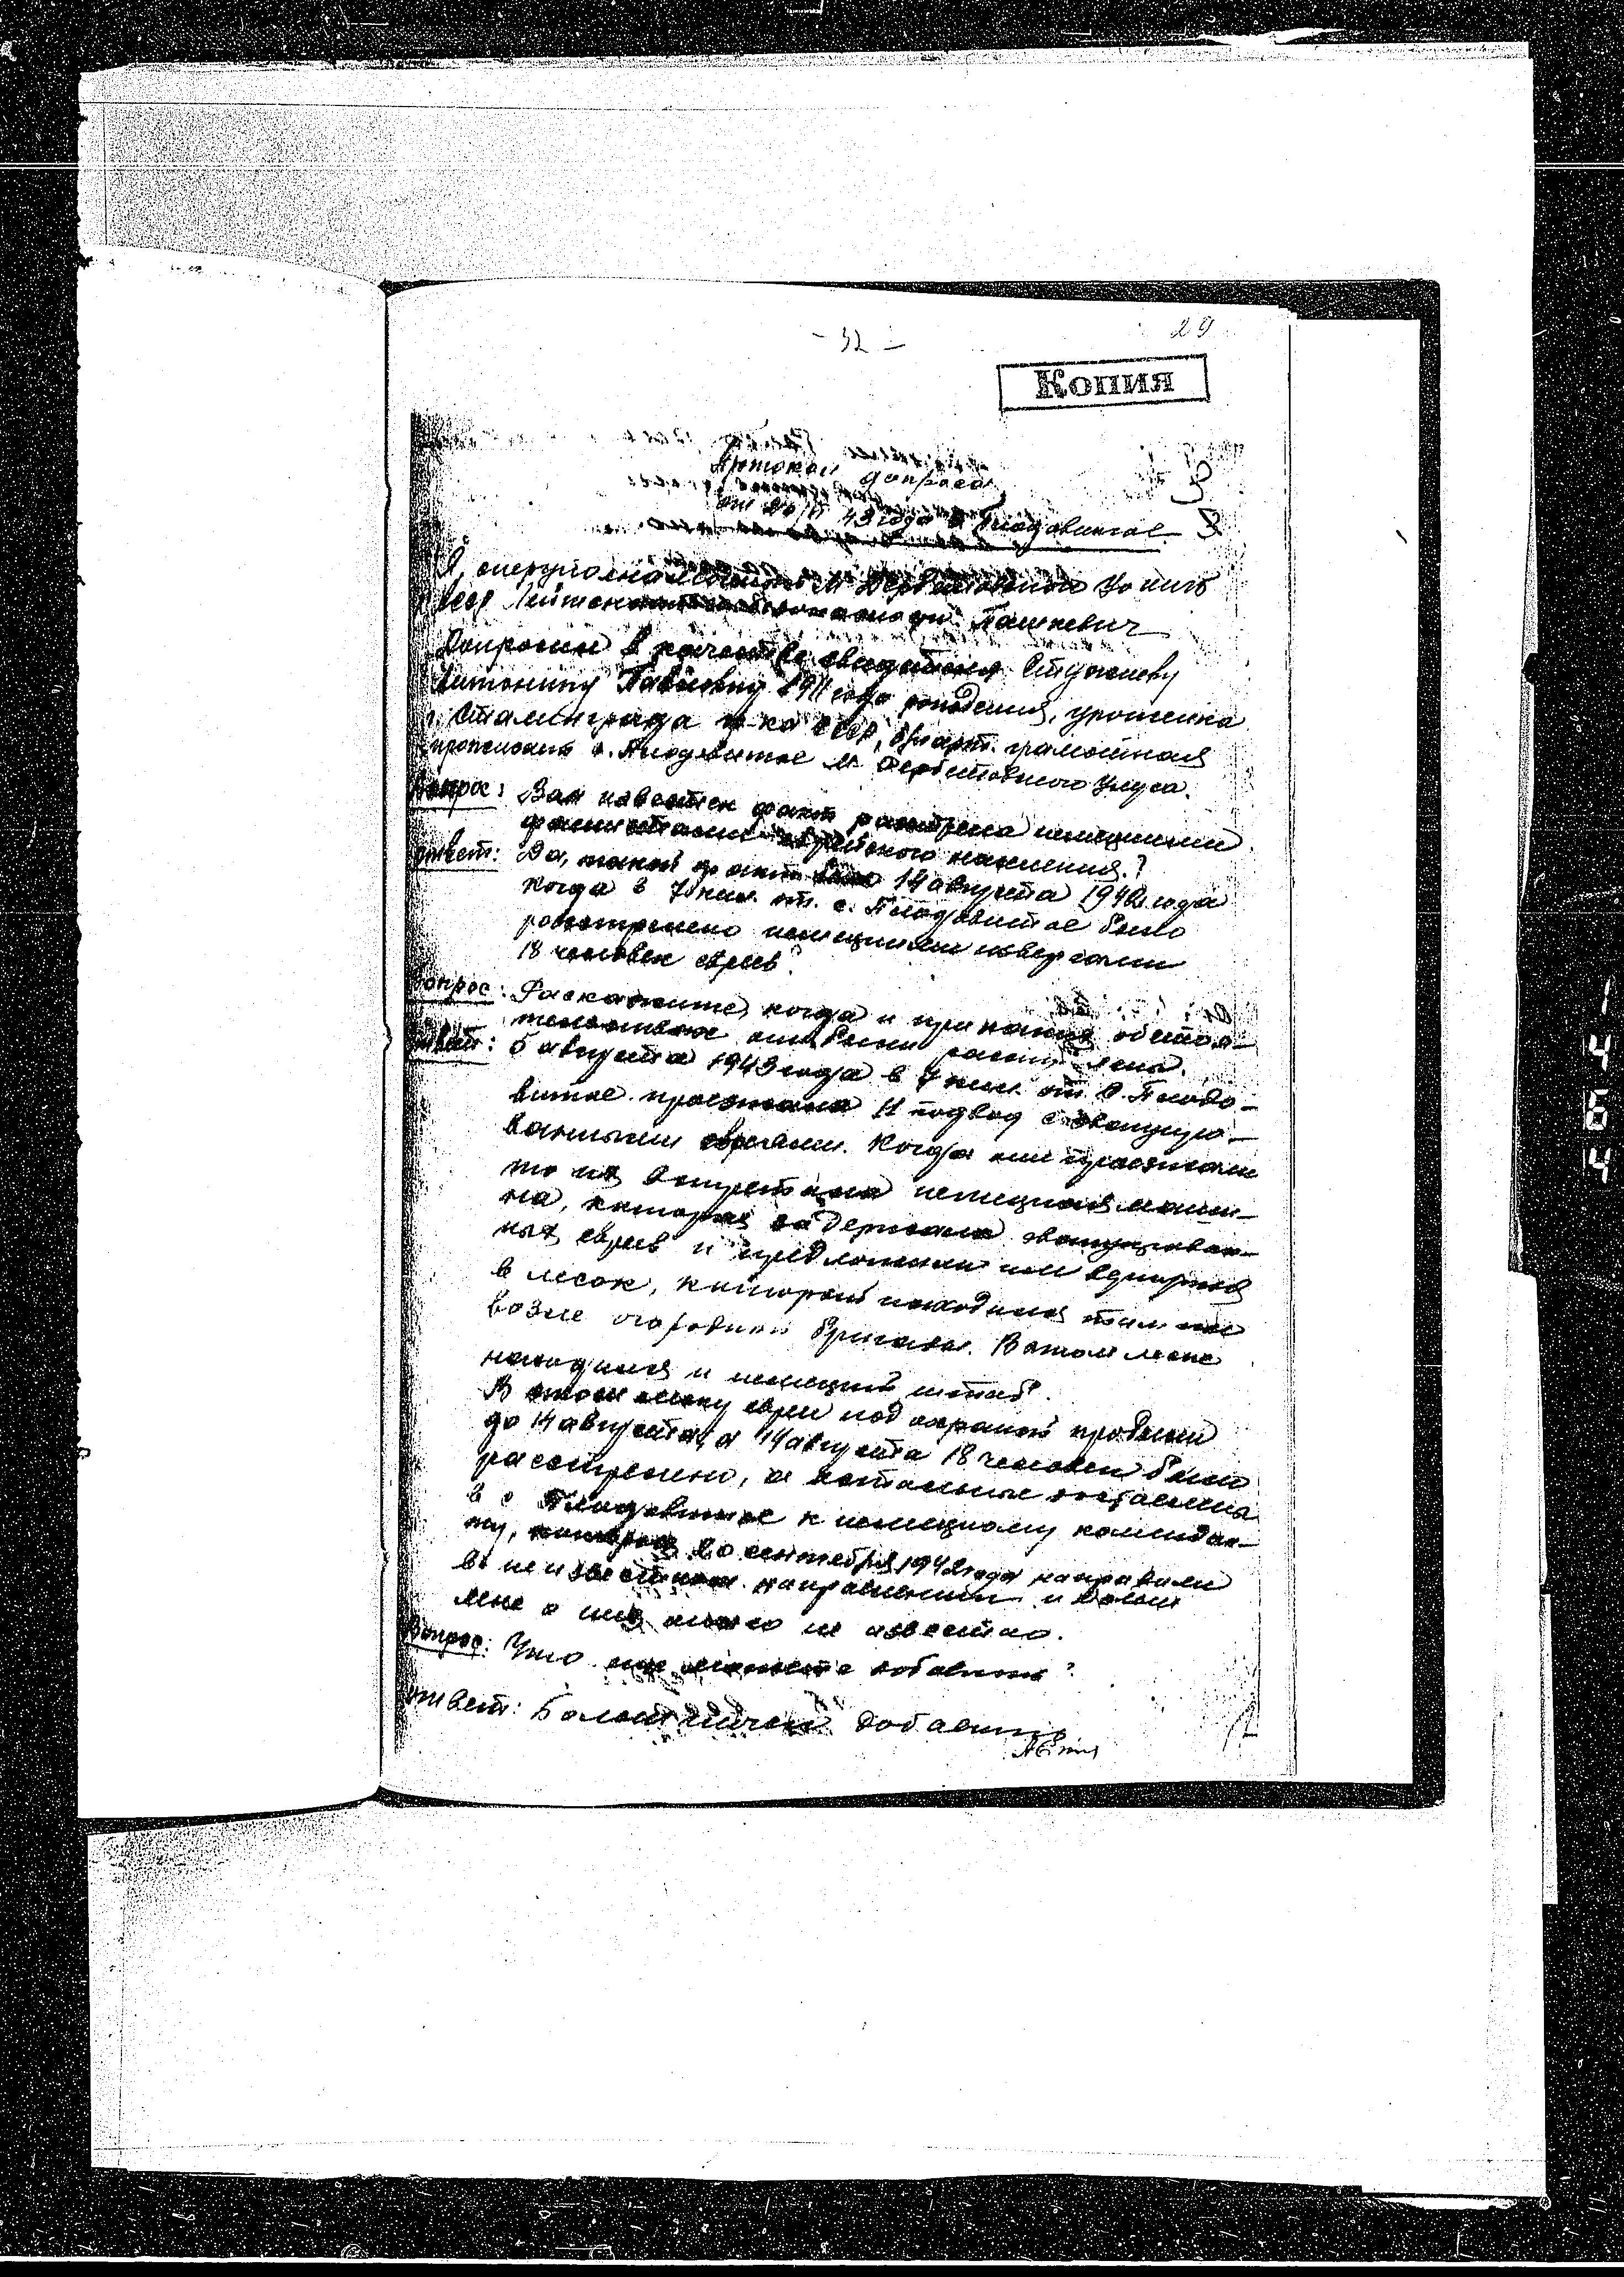 - 32 -
29
Копия
Протокол допроса
43 года с. Плодовитое
Я, оперуполномоченный М Дербетовского УО НКГБ
Лейтенант Пашкевич
Допросил в качестве свидетеля
Антонину Павловну 1911 года рождения, уроженка
г. Сталинграда гр-ка СССР, б/парт. грамотная
проживает с. Плодовитое М Дербетовского Улуса.
Вопрос: Вам известен факт расстрела немецкими
фашистами еврейского населения?
ответ: Да, такой факт был 14 августа 1942 года
когда в 7 км. от с. Плодовитое было
расстрелено немецкими извергами
18 человек евреев?
Вопрос: Раскажите, когда и при каких обстоя-
тельствах они были
ответ: 5 августа 1943 года в 7 км. от с. Плодо-
витое проезжало 11 подвод с эвакуиро-
ванными евреями. Когда они проезжали
то их встретила немецкая маши-
на, которая задержала эвакуирован-
ных евреев и предложили им вернутся
в лесок, который находился там же
возле огородной бригады. В этом леске
находился и немецкий штаб.
В этом леску евреи под охраной пробыли
до 14 августа, а 14 августа 18 человек было
расстрелено, а остальные доставлены
в с Плодовитое к немецкому комендан-
ту, которых 20 сентября 1942 года направили
в неизвестном направлении и больше
мне о них ничего не известно.
Вопрос: Что еще можете добавить?
ответ: Больше ничего добавить